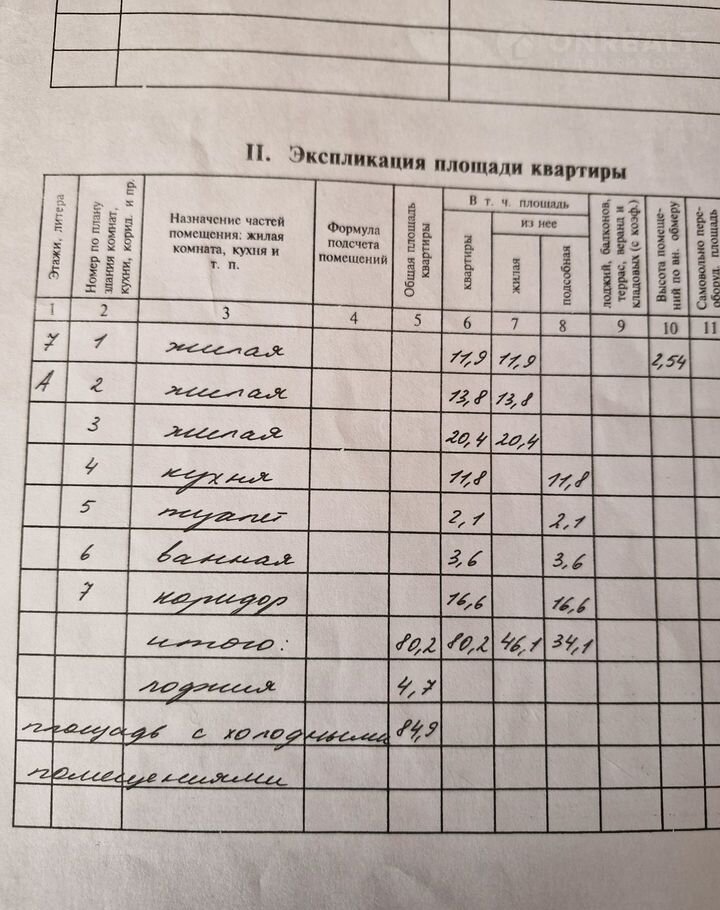 ONREALT
недвижимость
II. Экспликация площади квартиры
Этажи, литера
Номер по плану
здания комнат,
кухни, корид. и пр.
Назначение частей
помещения: жилая
комната, кухня и
т. п.
Формула
подсчета
помещений
Общая площадь
квартиры
В т. ч. площадь
из нее
квартиры
жилая
подсобная
лоджий, балконов,
террас, веранд и
кладовых (с коэф.)
Высота помеще-
ний по вн. обмеру
Самовольно пере-
оборуд. площадь
1 2 3 4 5 6 7 8 9 10 11
7 1 жилая 11,9 11,9 2,54
А 2 жилая 13,8 13,8
3 жилая 20,4 20,4
4 кухня 11,8 11,8
5 туалет 2,1 2,1
6 ванная 3,6 3,6
7 коридор 16,6 16,6
итого: 80,2 80,2 46,1 34,1
лоджия 4,7
площадь с холодными 84,9
помещениями